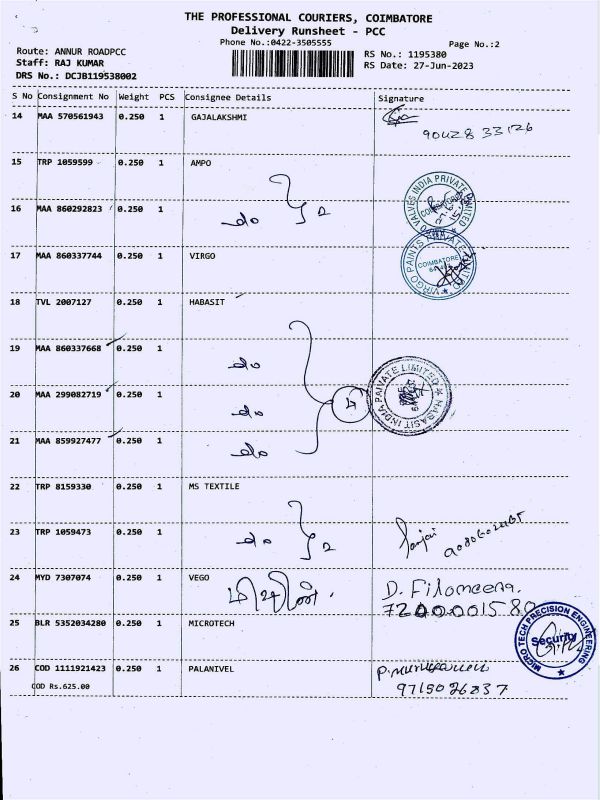 THE PROFESSIONAL COURIERS, COIMBATORE
Delivery Runsheet - PCC
Phone No.:0422-3505555
Page No.:2
Route: ANNUR ROADPCC
Staff: RAJ KUMAR
DRS No.: DCJB119538002
RS No.: 1195380
RS Date: 27-Jun-2023
S No Consignment No Weight PCS Consignee Details Signature
14 MAA 570561943 0.250 1 GAJALAKSHMI
90428 33126
15 TRP 1059599 0.250 1 AMPO
VALVES INDIA PRIVATE LIMITED
16 MAA 860292823 0.250 1 do } 2
17 MAA 860337744 0.250 1 VIRGO
VIRGO PAINTS PRIVATE LIMITED
COIMBATORE
18 TVL 2007127 0.250 1 HABASIT
19 MAA 860337668 0.250 1 do
20 MAA 299082719 0.250 1 do } 4
HABASIT INDIA PRIVATE LIMITED
21 MAA 859927477 0.250 1 do
22 TRP 8159330 0.250 1 MS TEXTILE
23 TRP 1059473 0.250 1 do } 2
Sanjai
24 MYD 7307074 0.250 1 VEGO
D. Filomeena.
25 BLR 5352034280 0.250 1 MICROTECH
MICRO TECH PRECISION ENGINEERING
Security
26 COD 1111921423 0.250 1 PALANIVEL
COD Rs.625.00